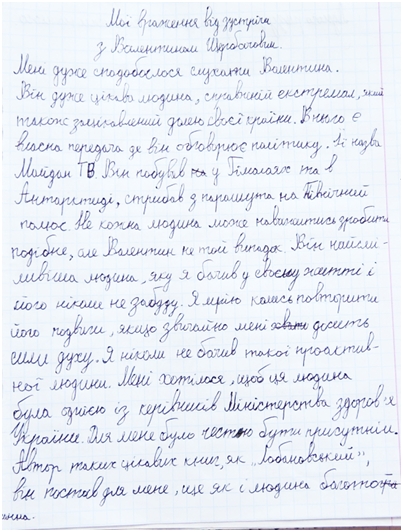 Мої враження від зустрічі
з Валентином Щербачовим.
Мені дуже сподобалося слухати Валентина.
Він дуже цікава людина, справжній екстремал, який
також зацікавлений долею своєї країни. В нього є
власна передача де він обговорює політику. Її назва
Майдан ТВ Він побував у Гімалаях та в
Антарктиді, стрибав з парашута на Північний
полюс. Не кожна людина може наважитись зробити
подібне, але Валентин не той випадок. Він найсмі-
ливіша людина, яку я бачив у своєму житті і
його ніколи не забуду. Я мрію колись повторити
його подвиги, якщо звичайно мені досить
сили духу. Я ніколи не бачив такої проактив-
ної людини. Мені хотілося, щоб ця людина
була однією із керівників Міністерства здоров'я
України. Для мене було честю бути присутнім.
Автор таких цікавих книг, як „Лобановський",
він постав для мене, ще як і людина багатогра-
нна.